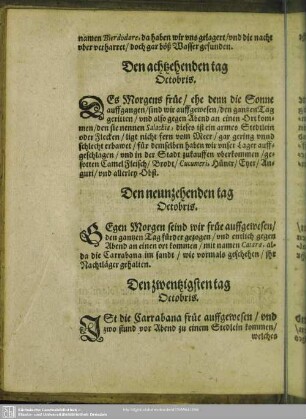 namen Merdodare, da haben wir vns gelagert/ vnd die nacht
vber verharret/ doch gar böß Wasser gefunden.
Den achtzehenden tag
Octobris.
DEs Morgens früe/ ehe denn die Sonne
auffgangen/ sind wir auffgewesen/ den gantzen Tag
geritten/ vnd also gegen Abend an einen Ort kom-
men/ den sie nennen dieses ist ein armes Stedtlein
oder Flecken/ ligt nicht fern vom Meer/ gar gering vnnd
schlecht erbawet/ für demselben haben wir vnser Lager auff-
geschlagen/ vnd in der Stadt zukauffen vberkommen/ ge-
sotten Camel Fleisch/ Brodt/ Cucumeri, Hüner/ Eyer/ An-
guri/ vnd allerley Obst.
Den neunzehenden tag
Octobris.
GEgen Morgen seind wir früe auffgewesen/
den gantzen Tag für der gezogen/ vnd entlich gegen
Abend an einen ort kommen/ mit namen Catara, al-
da die Carrabana im sandt/ wie vormals geschehen/ ihr
Nachtläger gehalten.
Den zwentzigsten tag
Octobris.
ISt die Carrabana früe auffgewesen/ vnd
zwo stund vor Abend zu einem Stedlein kommen/
welches